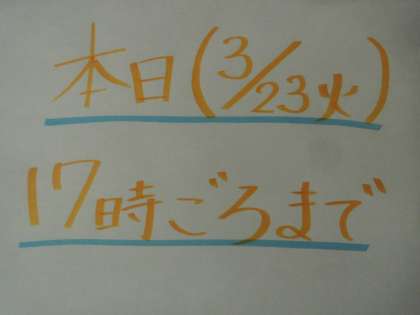 本日(3/23火)
17時ごろまで